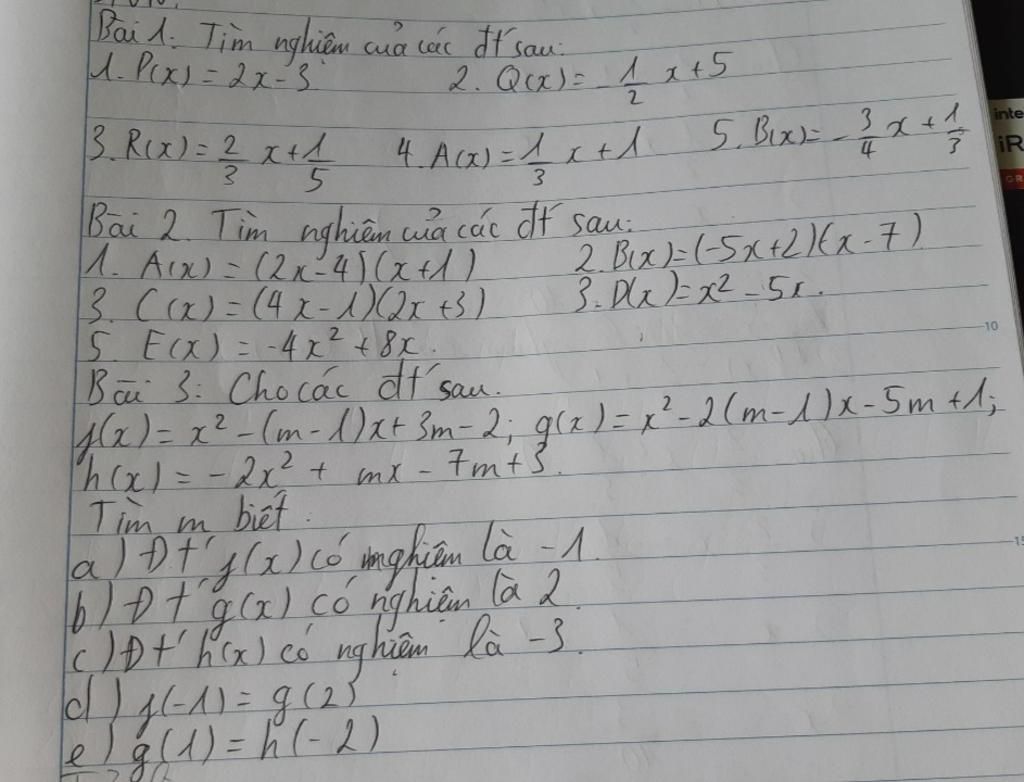 Bài 1. Tìm nghiệm của các đt sau:
1. P(x) = 2x - 3 2. Q(x) = -1/2 x + 5
3. R(x) = 2/3 x + 1/5 4. A(x) = 1/3 x + 1 5. B(x) = -3/4 x + 1/3
Bài 2. Tìm nghiệm của các đt sau:
1. A(x) = (2x - 4)(x + 1) 2. B(x) = (-5x + 2)(x - 7)
3. C(x) = (4x - 1)(2x + 3) 3. D(x) = x² - 5x.
5. E(x) = -4x² + 8x.
Bài 3: Cho các đt sau.
f(x) = x² - (m - 1)x + 3m - 2; g(x) = x² - 2(m - 1)x - 5m + 1;
h(x) = -2x² + mx - 7m + 3.
Tìm m biết:
a) Đt f(x) có nghiệm là -1.
b) Đt g(x) có nghiệm là 2.
c) Đt h(x) có nghiệm là -3.
d) f(-1) = g(2)
e) g(1) = h(-2)
10
inte
iR